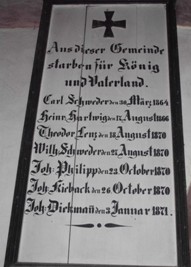 Aus dieser Gemeinde
starben für König
und Vaterland.
Carl Schweder den 30 März 1864
Heinr. Hartwig den 17 August 1866
Theodor Lenz den 18 August 1870
Wilh. Schweder den 27 August 1870
Joh. Philipp den 23 October 1870
Joh. Kieback den 26 October 1870
Joh. Diekmañ den 3 Januar 1871.